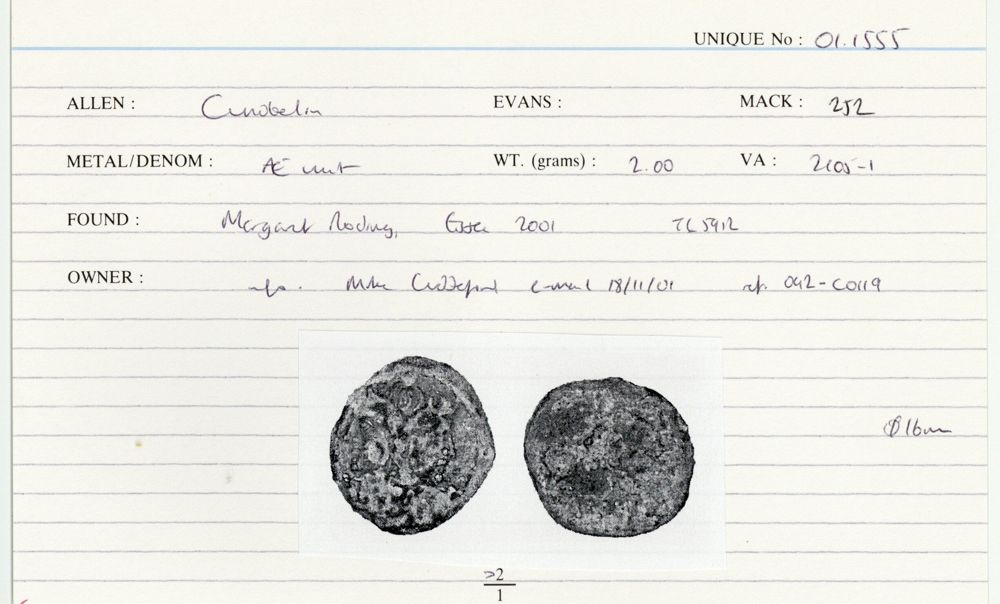 UNIQUE No : 01.1555
ALLEN : Cunobelin EVANS : MACK : 252
METAL/DENOM : Æ unit WT. (grams) : 2.00 VA : 2105-1
FOUND : Margaret Roding, Essex 2001 TL5912
OWNER : info. Mike Cuddeford e-mail 18/11/01 ref. 042-C0119
Ø16mm
>2
1